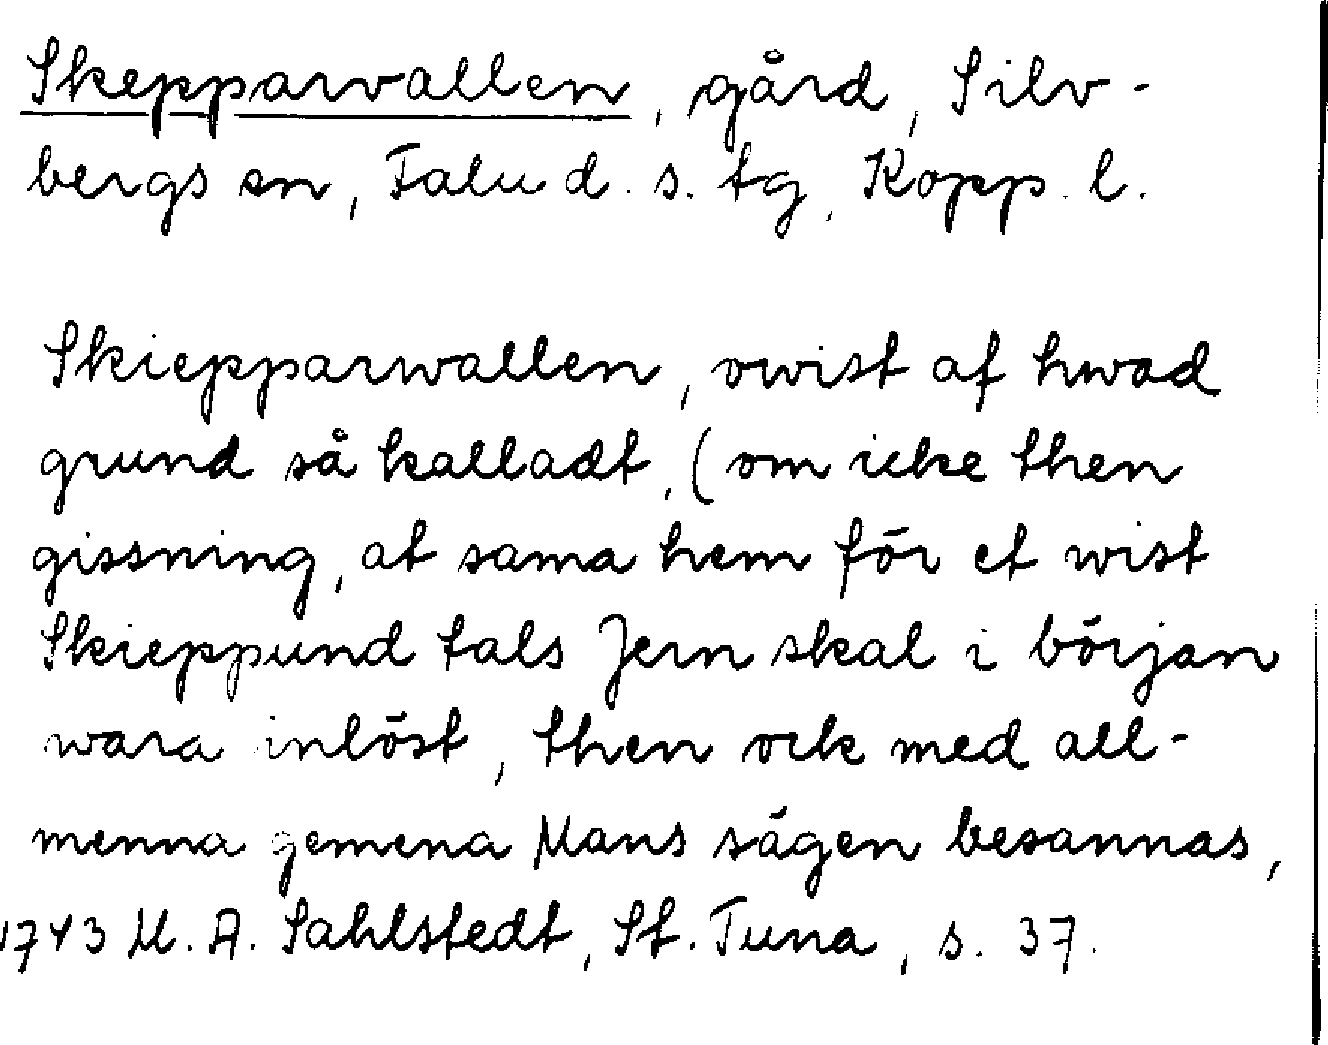 Skepparvallen, gård, Silv-
bergs sn, Falu d. s. tg, Kopp. l.
Skiepparwallen, owist af hwad
grund så kalladt, (om icke then
gissning, at sama hem för et wist
Skieppund tals Jern skal i början
wara inlöst, then ock med all-
menna gemena Mans sägen besannas,
1743 M. A. Sahlstedt, St. Tuna, s. 37.